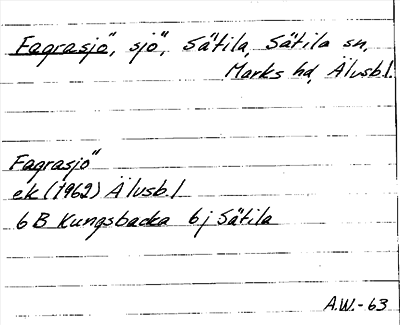 Fagrasjö, sjö, Sätila, Sätila sn,
Marks hd, Älvsb.l.
Fagrasjö
ek (1962) Älvsb.l
6 B Kungsbacka 6 j Sätila
A.W.-63